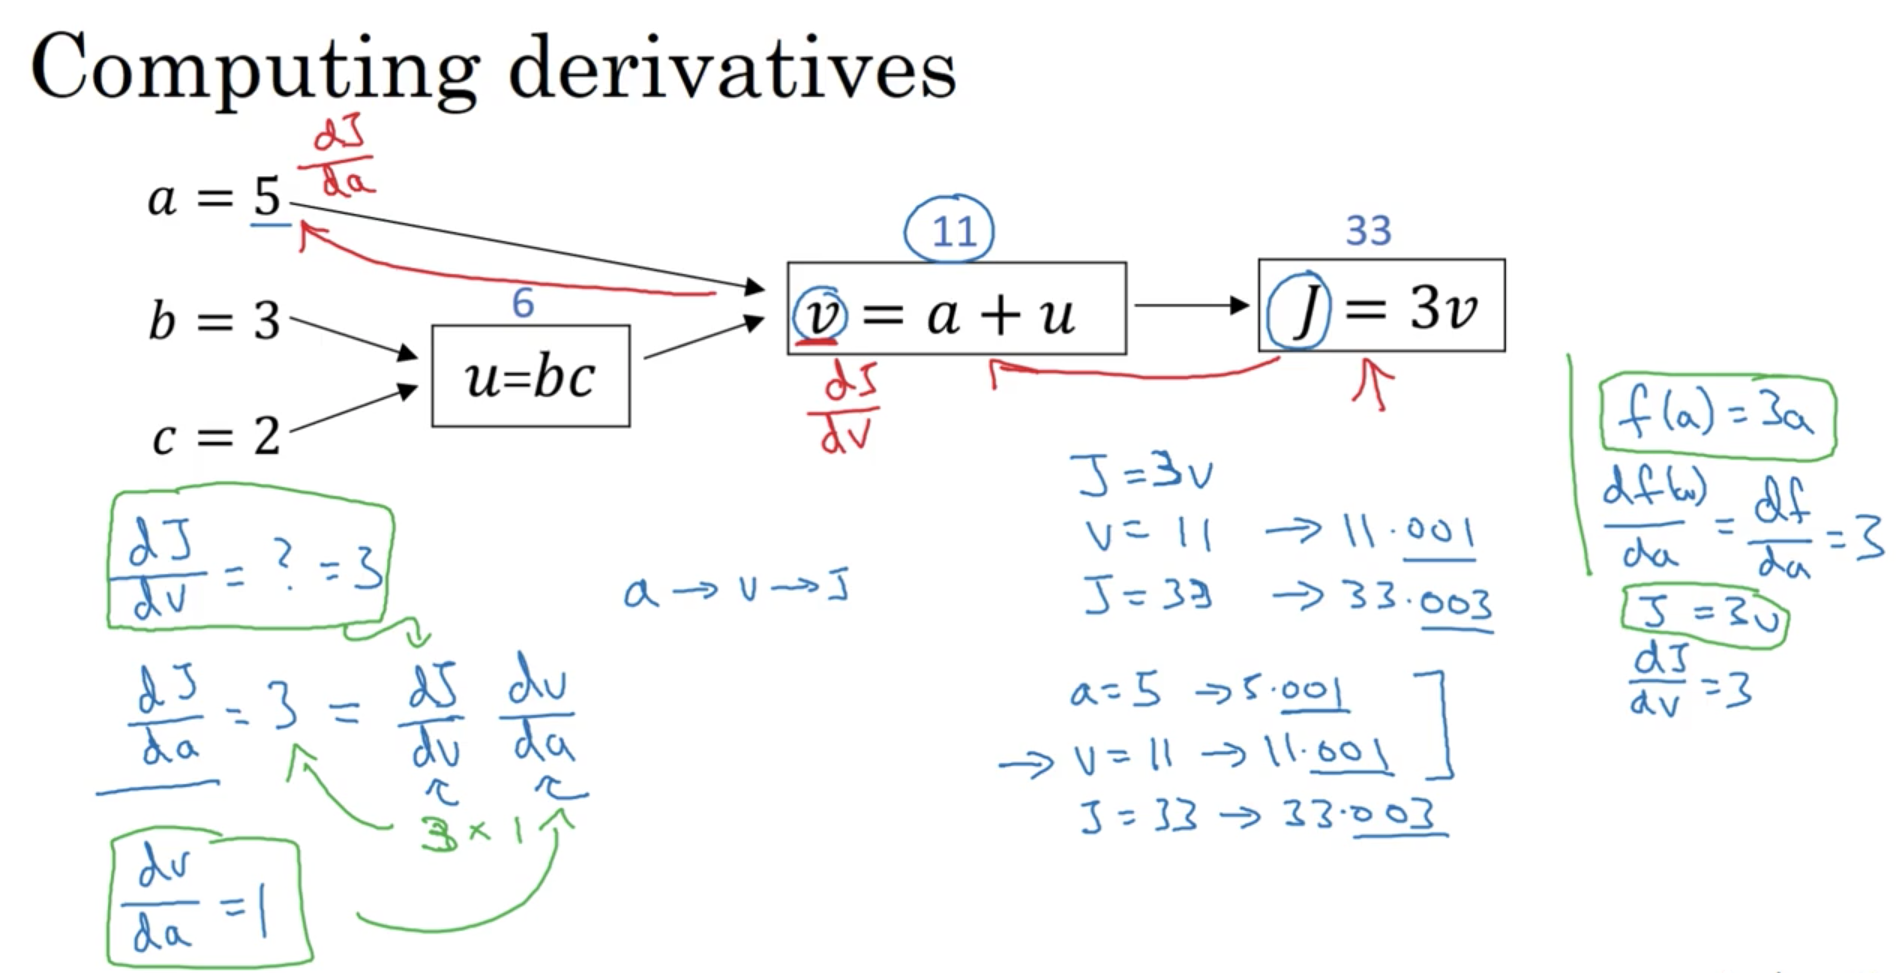 Computing derivatives
a = 5
dJ/da
b = 3
c = 2
6
u=bc
11
v = a + u
dJ/dv
33
J = 3v
dJ/dv = ? = 3
dJ/da = 3 = dJ/dv dv/da
3 × 1
dv/da = 1
a → v → J
J = 3v
v = 11 → 11.001
J = 33 → 33.003
a = 5 → 5.001
→ v = 11 → 11.001
J = 33 → 33.003
f(a) = 3a
df(a)/da = df/da = 3
J = 3v
dJ/dv = 3